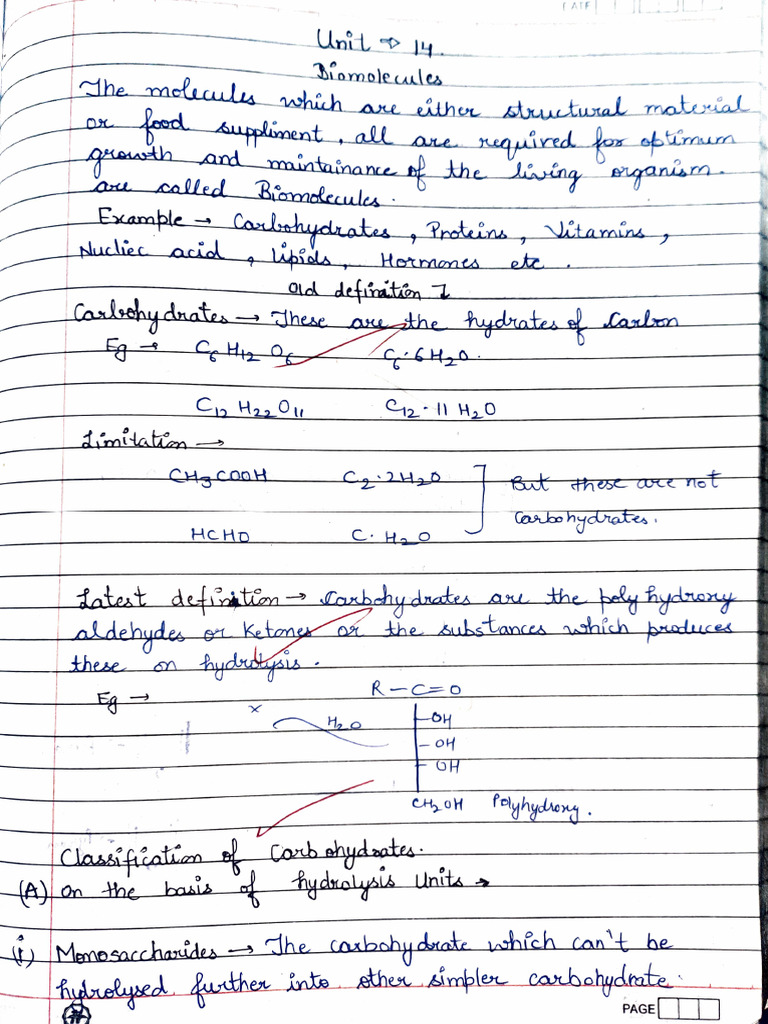 DATE
Unit ⇒ 14.
Biomolecules
The molecules which are either structural material
or food suppliment, all are required for optimum
growth and maintainance of the living organism.
are called Biomolecules.
Example → Carbohydrates, Proteins, Vitamins,
Nucliec acid, Lipids, Hormones etc.
Old definition ↓
Carbohydrates → These are the hydrates of Carbon
Eg → C₆H₁₂O₆ C₆·6H₂O.
C₁₂H₂₂O₁₁ C₁₂·11H₂O
Limitation →
CH₃COOH C₂·2H₂O
But these are not
carbohydrates.
HCHO C·H₂O
Latest definition → Carbohydrates are the poly hydroxy
aldehydes or Ketones or the substances which produces
these on hydrolysis.
Eg → R—C=O
x H₂O —OH
—OH
—OH
CH₂OH Polyhydroxy.
Classification of Carbohydrates.
(A) on the basis of hydrolysis Units →
(i) Monosaccharides → The carbohydrate which can't be
hydrolysed further into other simpler carbohydrate.
PAGE